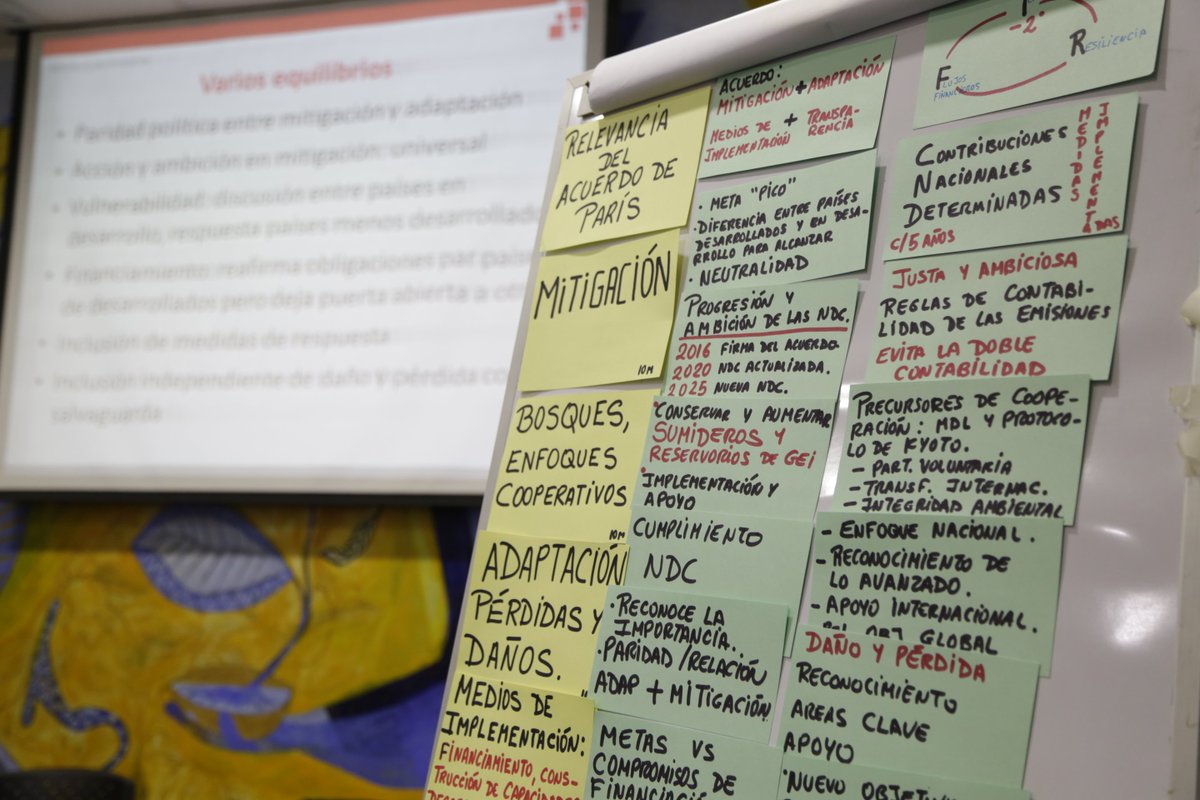 Varios equilibrios
• Paridad política entre mitigación y adaptación
• Acción y ambición en mitigación: universal
• Vulnerabilidad: discusión entre países en
desarrollo, respuesta países menos desarrollado
• Financiamiento: reafirma obligaciones por país
de desarrollados pero deja puerta abierta a
• Inclusión de medidas de respuesta
• Inclusión independiente de daño y pérdida
salvaguarda
RELEVANCIA
DEL
ACUERDO DE
PARÍS
MITIGACIÓN
10M
BOSQUES,
ENFOQUES
COOPERATIVOS
10M
ADAPTACIÓN
PÉRDIDAS Y
DAÑOS.
MEDIOS DE
IMPLEMENTACIÓN:
FINANCIAMIENTO, CONS-
TRUCCIÓN DE CAPACIDADES
ACUERDO:
MITIGACIÓN + ADAPTACIÓN
+
MEDIOS DE TRANSPA-
IMPLEMENTACIÓN RENCIA
• META "PICO"
• DIFERENCIA ENTRE PAÍSES
DESARROLLADOS Y EN DESA-
RROLLO PARA ALCANZAR
• NEUTRALIDAD
PROGRESIÓN Y
AMBICIÓN DE LAS NDC.
2016 FIRMA DEL ACUERDO
2020 NDC ACTUALIZADA.
2025 NUEVA NDC.
• CONSERVAR Y AUMENTAR
SUMIDEROS Y
RESERVORIOS DE GEI
• IMPLEMENTACIÓN Y
APOYO
CUMPLIMIENTO
NDC
• RECONOCE LA
IMPORTANCIA.
• PARIDAD/RELACIÓN
ADAP + MITIGACIÓN
METAS VS
COMPROMISOS DE
FINANCIACIÓ
-2°
RESILIENCIA
FLUJOS
FINANCIEROS
CONTRIBUCIONES
NACIONALES
DETERMINADAS
C/5 AÑOS
MEDIDAS
IMPLEMENTADAS
JUSTA Y AMBICIOSA
REGLAS DE CONTABI-
LIDAD DE LAS EMISIONES
EVITA LA DOBLE
CONTABILIDAD
PRECURSORES DE COOPE-
RACIÓN: MDL Y PROTOCO-
LO DE KYOTO.
- PART. VOLUNTARIA
- TRANSF. INTERNAC.
- INTEGRIDAD AMBIENTAL
- ENFOQUE NACIONAL.
- RECONOCIMIENTO DE
LO AVANZADO.
- APOYO INTERNACIONAL.
GLOBAL
DAÑO Y PÉRDIDA
RECONOCIMIENTO
AREAS CLAVE
APOYO
• NUEVO OBJETIV